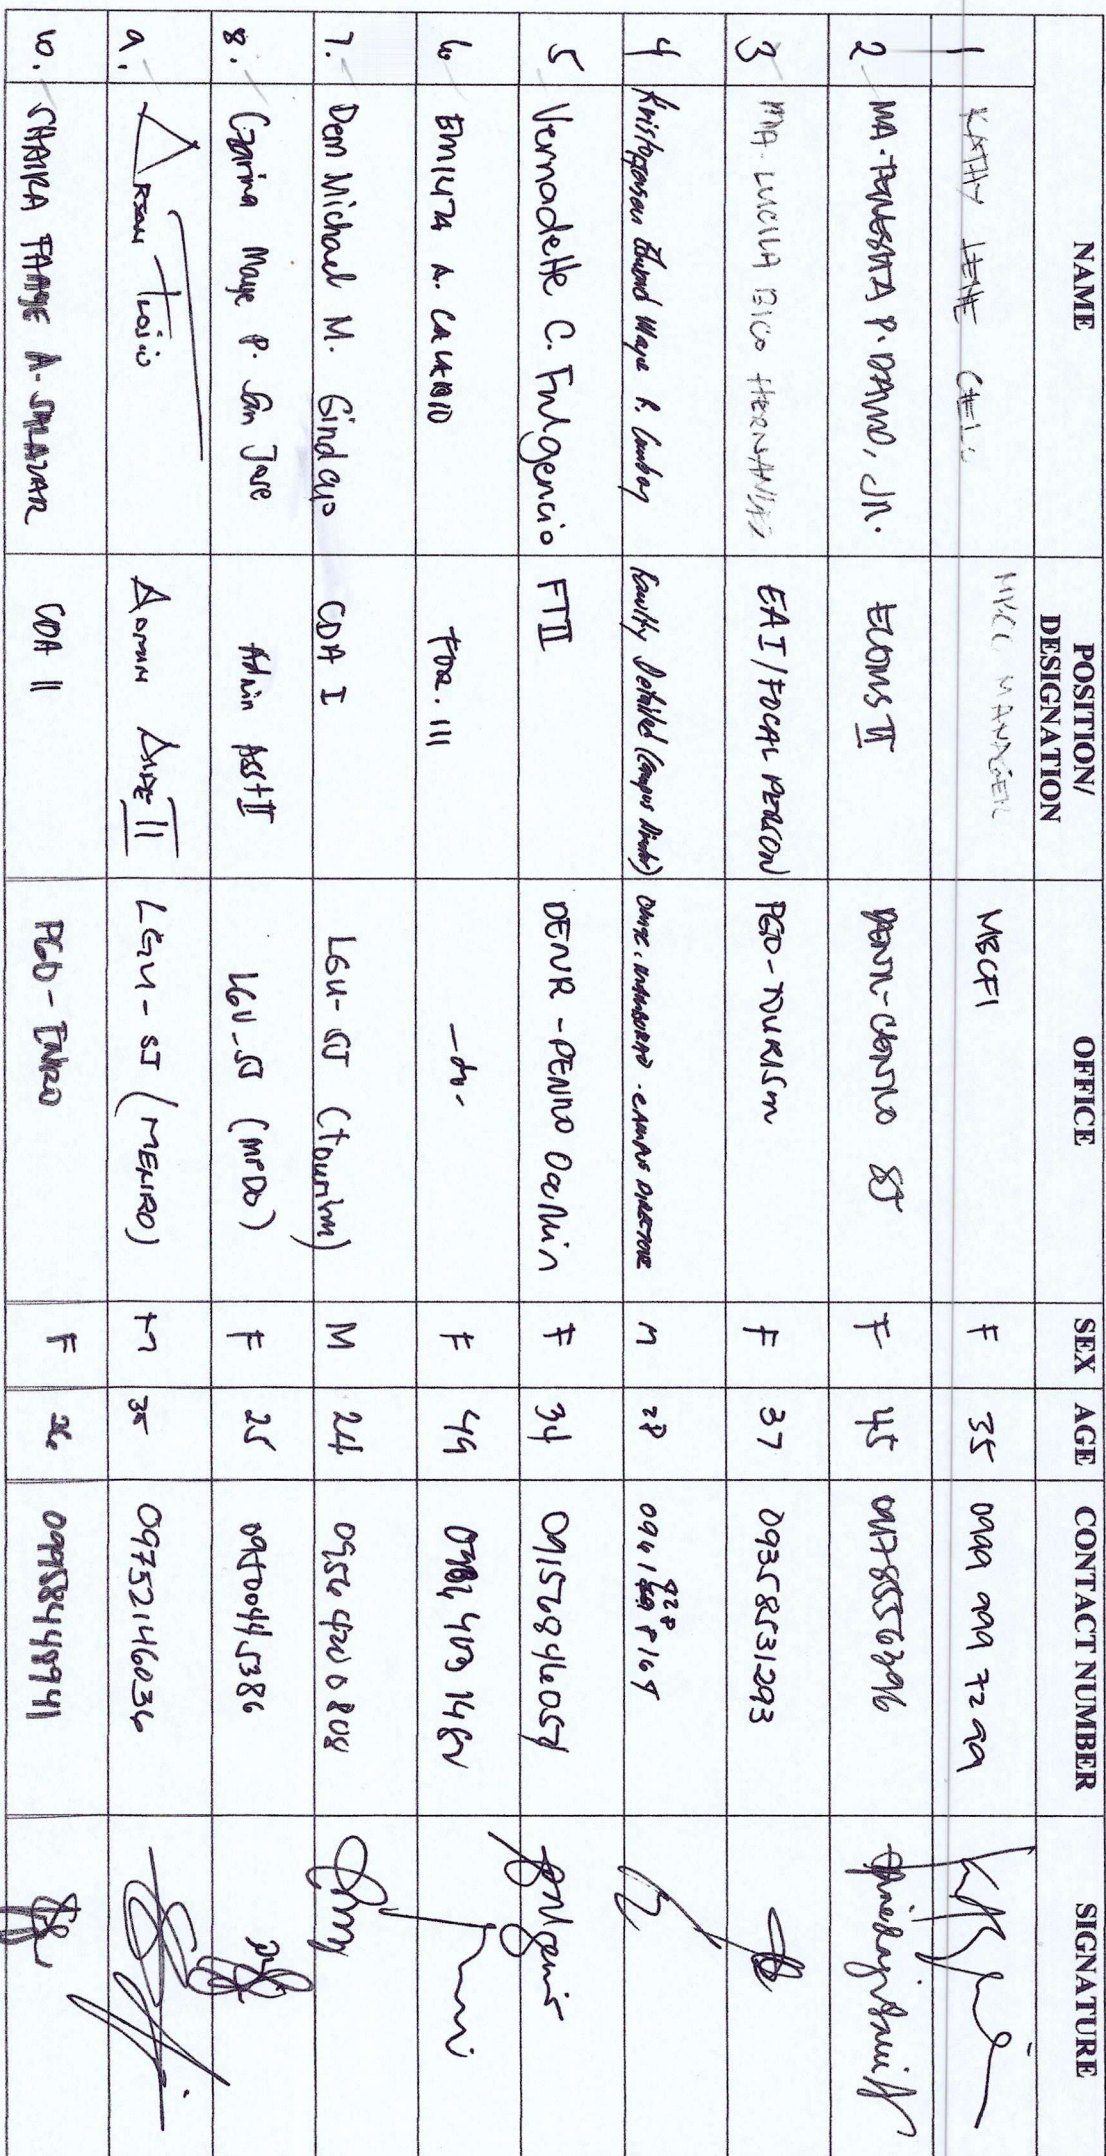 NAME POSITION/ DESIGNATION OFFICE SEX AGE CONTACT NUMBER SIGNATURE
1 KATHY LENE CHELO MYCC MANAGER MBCFI F 35 0999 999 7299
2 MA. P. DAWO, JR. ECOMS II DENR-CENRO SJ F 45
3 MA. LUCILA BICO HERNANDEZ EAI/FOCAL PERSON PGO-TOURISM F 37 09358531293
4 Edward P. Faculty Detailed (Campus Director) - CAMPUS DIRECTOR M 28 0941 928
5 Vernadette C. Fulgencio FTII DENR-PENRO OcciMin F 34 09157846054
6 EMILITA A. For. III -do- F 49 403 1482
7. Dem Michael M. Gindap CDA I LGU-SJ (tourism) M 24 0956 420 0808
8. Czarina Maye P. San Jose Admin Asst II LGU-SJ (MPDO) F 25 09500445386
9. ADMIN AIDE III LGU-SJ (MENRO) M 35 09752146036
10. SHAIRA FAAYE A. SALAZAR CDA II PGO- F 26 09958448941